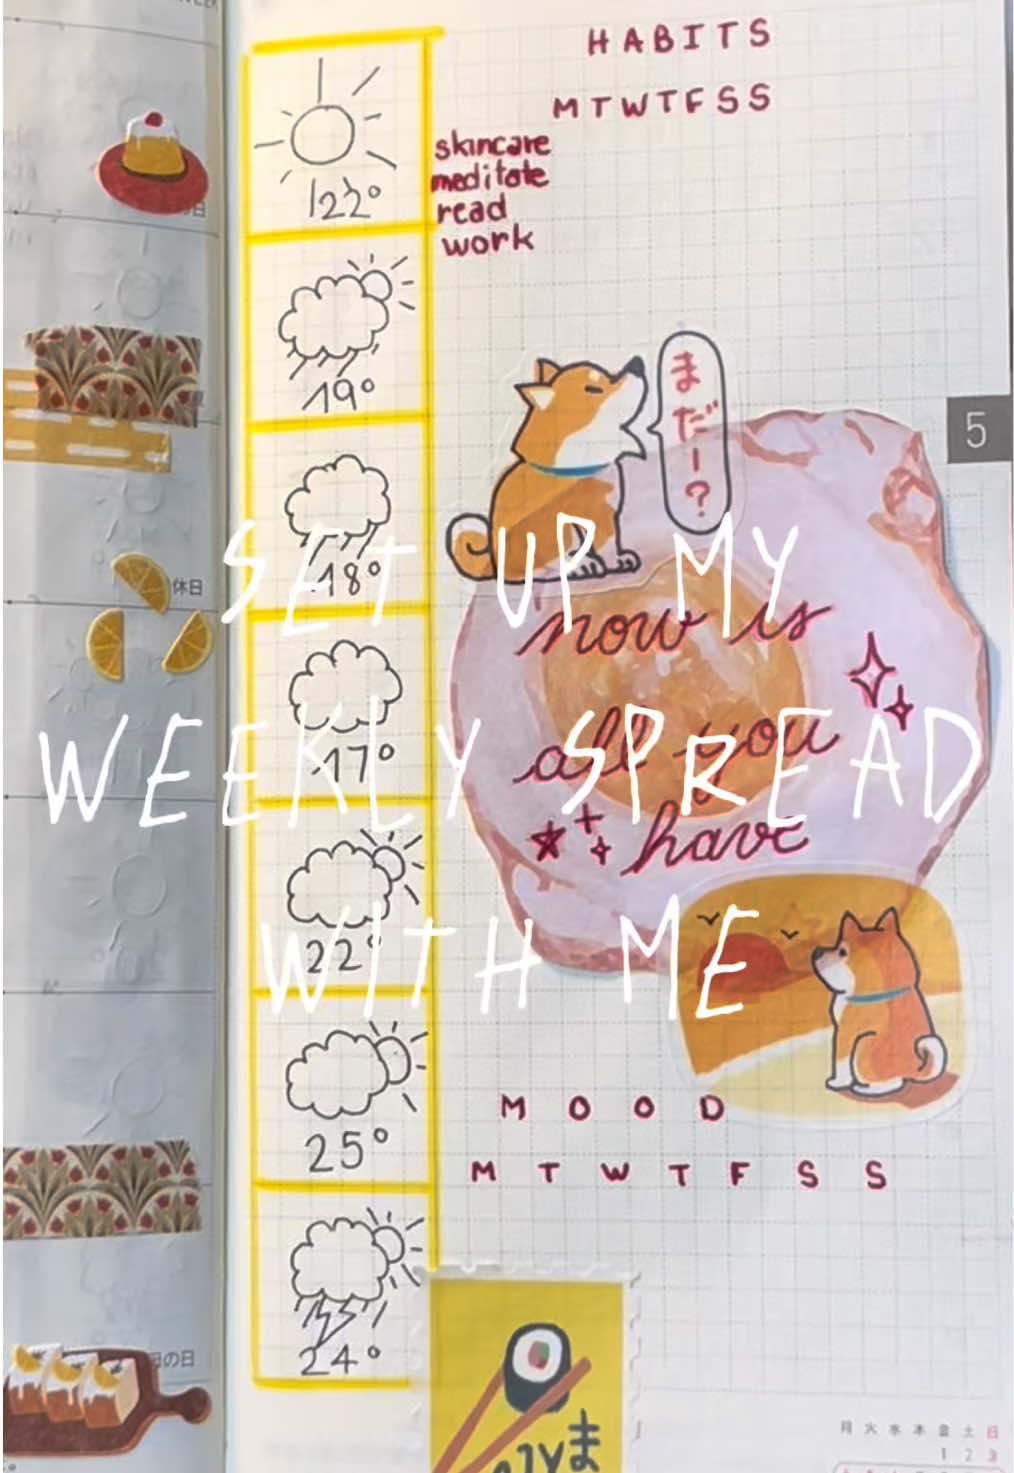 HABITS
MTWTFSS
skincare
meditate
read
work
22°
19°
18°
17°
22°
25°
24°
まだー?
5
休日
の日
now is
all you
have
SET UP MY
WEEKLY SPREAD
WITH ME
MOOD
M T W T F S S
月 火 水 木 金 土 日
1 2 3